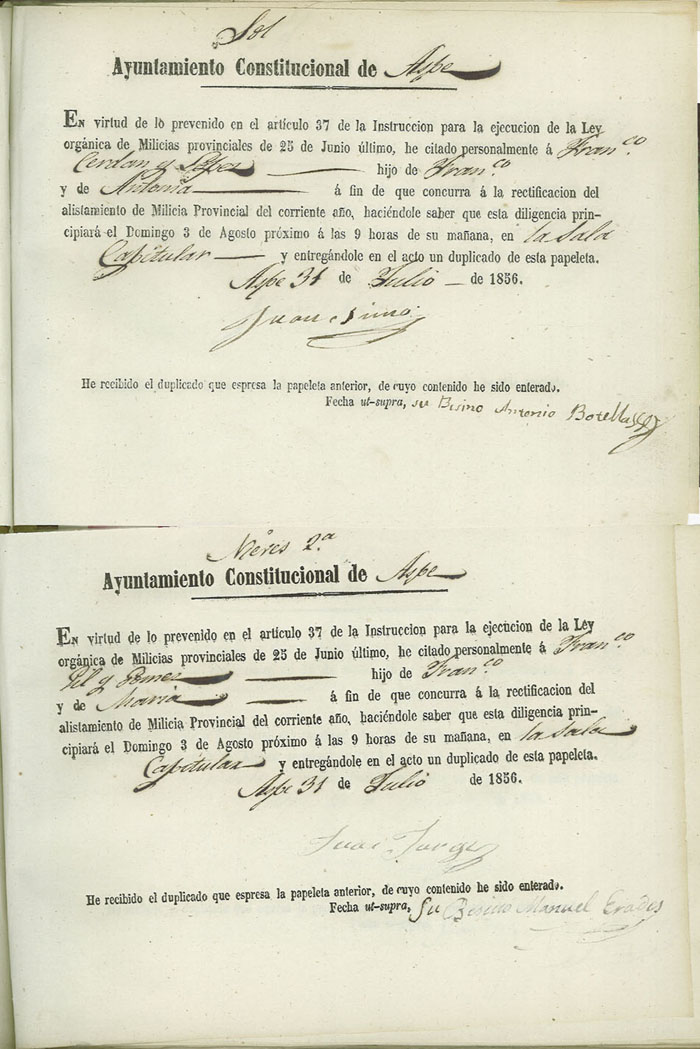 Sol
Ayuntamiento Constitucional de Aspe
EN virtud de lo prevenido en el artículo 37 de la Instruccion para la ejecucion de la Ley
orgánica de Milicias provinciales de 25 de Junio último, he citado personalmente á Fran.co
Cerdan y Lopez hijo de Fran.co
y de Antonia á fin de que concurra á la rectificacion del
alistamiento de Milicia Provincial del corriente año, haciéndole saber que esta diligencia prin-
cipiará el Domingo 3 de Agosto próximo á las 9 horas de su mañana, en la Sala
Capitular y entregándole en el acto un duplicado de esta papeleta.
Aspe 31 de Julio de 1856.
Juan
He recibido el duplicado que espresa la papeleta anterior, de cuyo contenido he sido enterado.
Fecha ut-supra, su Besino Antonio Botella
2.a
Ayuntamiento Constitucional de Aspe
EN virtud de lo prevenido en el artículo 37 de la Instruccion para la ejecucion de la Ley
orgánica de Milicias provinciales de 25 de Junio último, he citado personalmente á Fran.co
Gil y Gomez hijo de Fran.co
y de Maria á fin de que concurra á la rectificacion del
alistamiento de Milicia Provincial del corriente año, haciéndole saber que esta diligencia prin-
cipiará el Domingo 3 de Agosto próximo á las 9 horas de su mañana, en la Sala
Capitular y entregándole en el acto un duplicado de esta papeleta.
Aspe 31 de Julio de 1856.
Jorge
He recibido el duplicado que espresa la papeleta anterior, de cuyo contenido he sido enterado.
Fecha ut-supra, Su Besino Manuel Erades